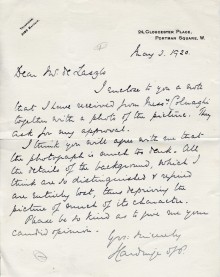 TELEPHONE
MAYFAIR
92, GLOUCESTER PLACE,
PORTMAN SQUARE, W.
May 3. 1920.
Dear Mr de Laszlo
I enclose to you a note
that I have received from Messrs
together with a photo of the picture. They
ask for my approval.
I think you will agree with me that
the photograph is much too dark. All
the details of the background, which I
think are so distinguished & refined
are entirely lost, thus depriving the
picture of much of its character.
Please be so kind as to give me your
candid opinion.
Yrs. sincerely
Hardinge of P.